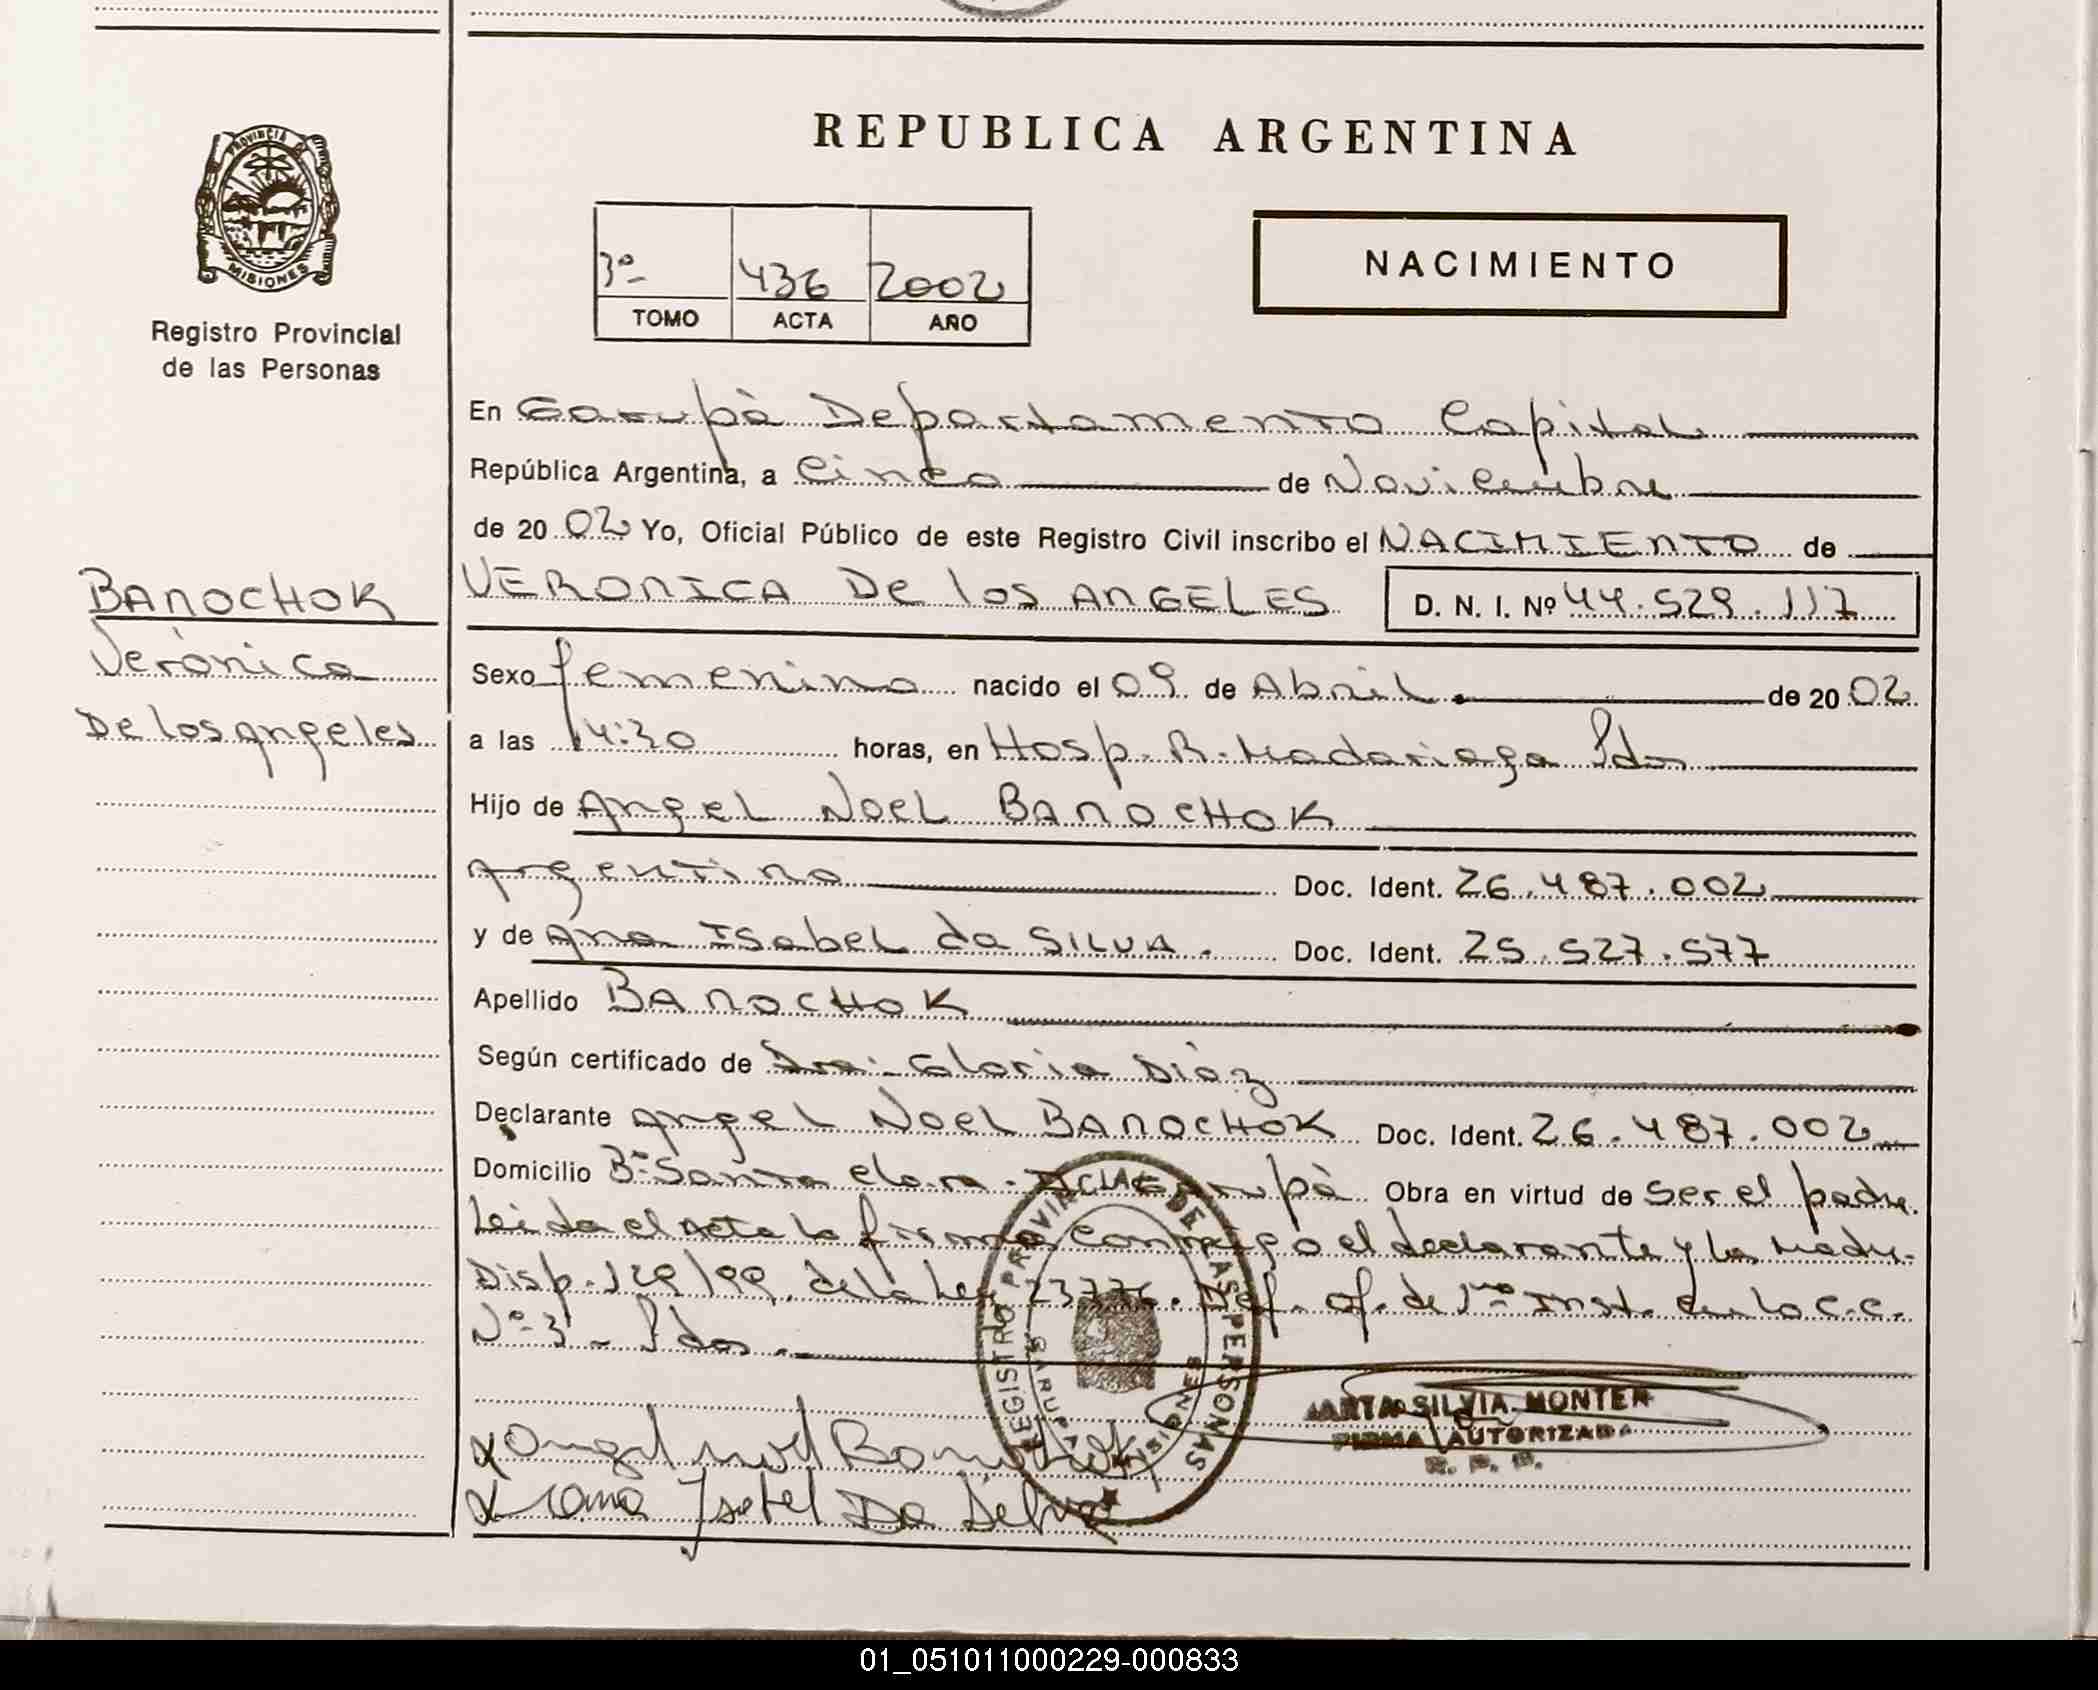 REPUBLICA ARGENTINA
PROVINCIA DE
MISIONES
Registro Provincial
de las Personas
3º 436 2002
TOMO ACTA AÑO
NACIMIENTO
En Garupà Departamento Capital
República Argentina, a Cinco de Noviembre
de 2002 Yo, Oficial Público de este Registro Civil inscribo el NACIMIENTO de
BANOCHOK
Verònica
De los Angeles
VERONICA De los ANGELES D. N. I. Nº 44.529.117
Sexo femenino nacido el 09 de Abril de 2002
a las 14:30 horas, en Hosp. R. Madariaga Pdas
Hijo de Angel Noel BANOCHOK
Argentino Doc. Ident. 26.487.002
y de Ana Isabel da SILVA. Doc. Ident. 25.527.577
Apellido BANOCHOK
Según certificado de Dra. Gloria Diàz
Declarante Angel Noel BANOCHOK Doc. Ident. 26.487.002
Domicilio Bº Santa Clara. Garupà Obra en virtud de ser el padre.
Leida el Acta la firma conmigo el declarante y la Madre.
Disp. 129/99. de la Ley 23776. Def. of. de 1ra Inst. en lo C.C.
Nº 3 - Pdas.
REGISTRO PROVINCIAL DE LAS PERSONAS
GARUPA MISIONES
MARTA SILVIA MONTER
FIRMA AUTORIZADA
R. P. P.
Angel Noel Banochok
Ana Isabel Da Silva
01_051011000229-000833